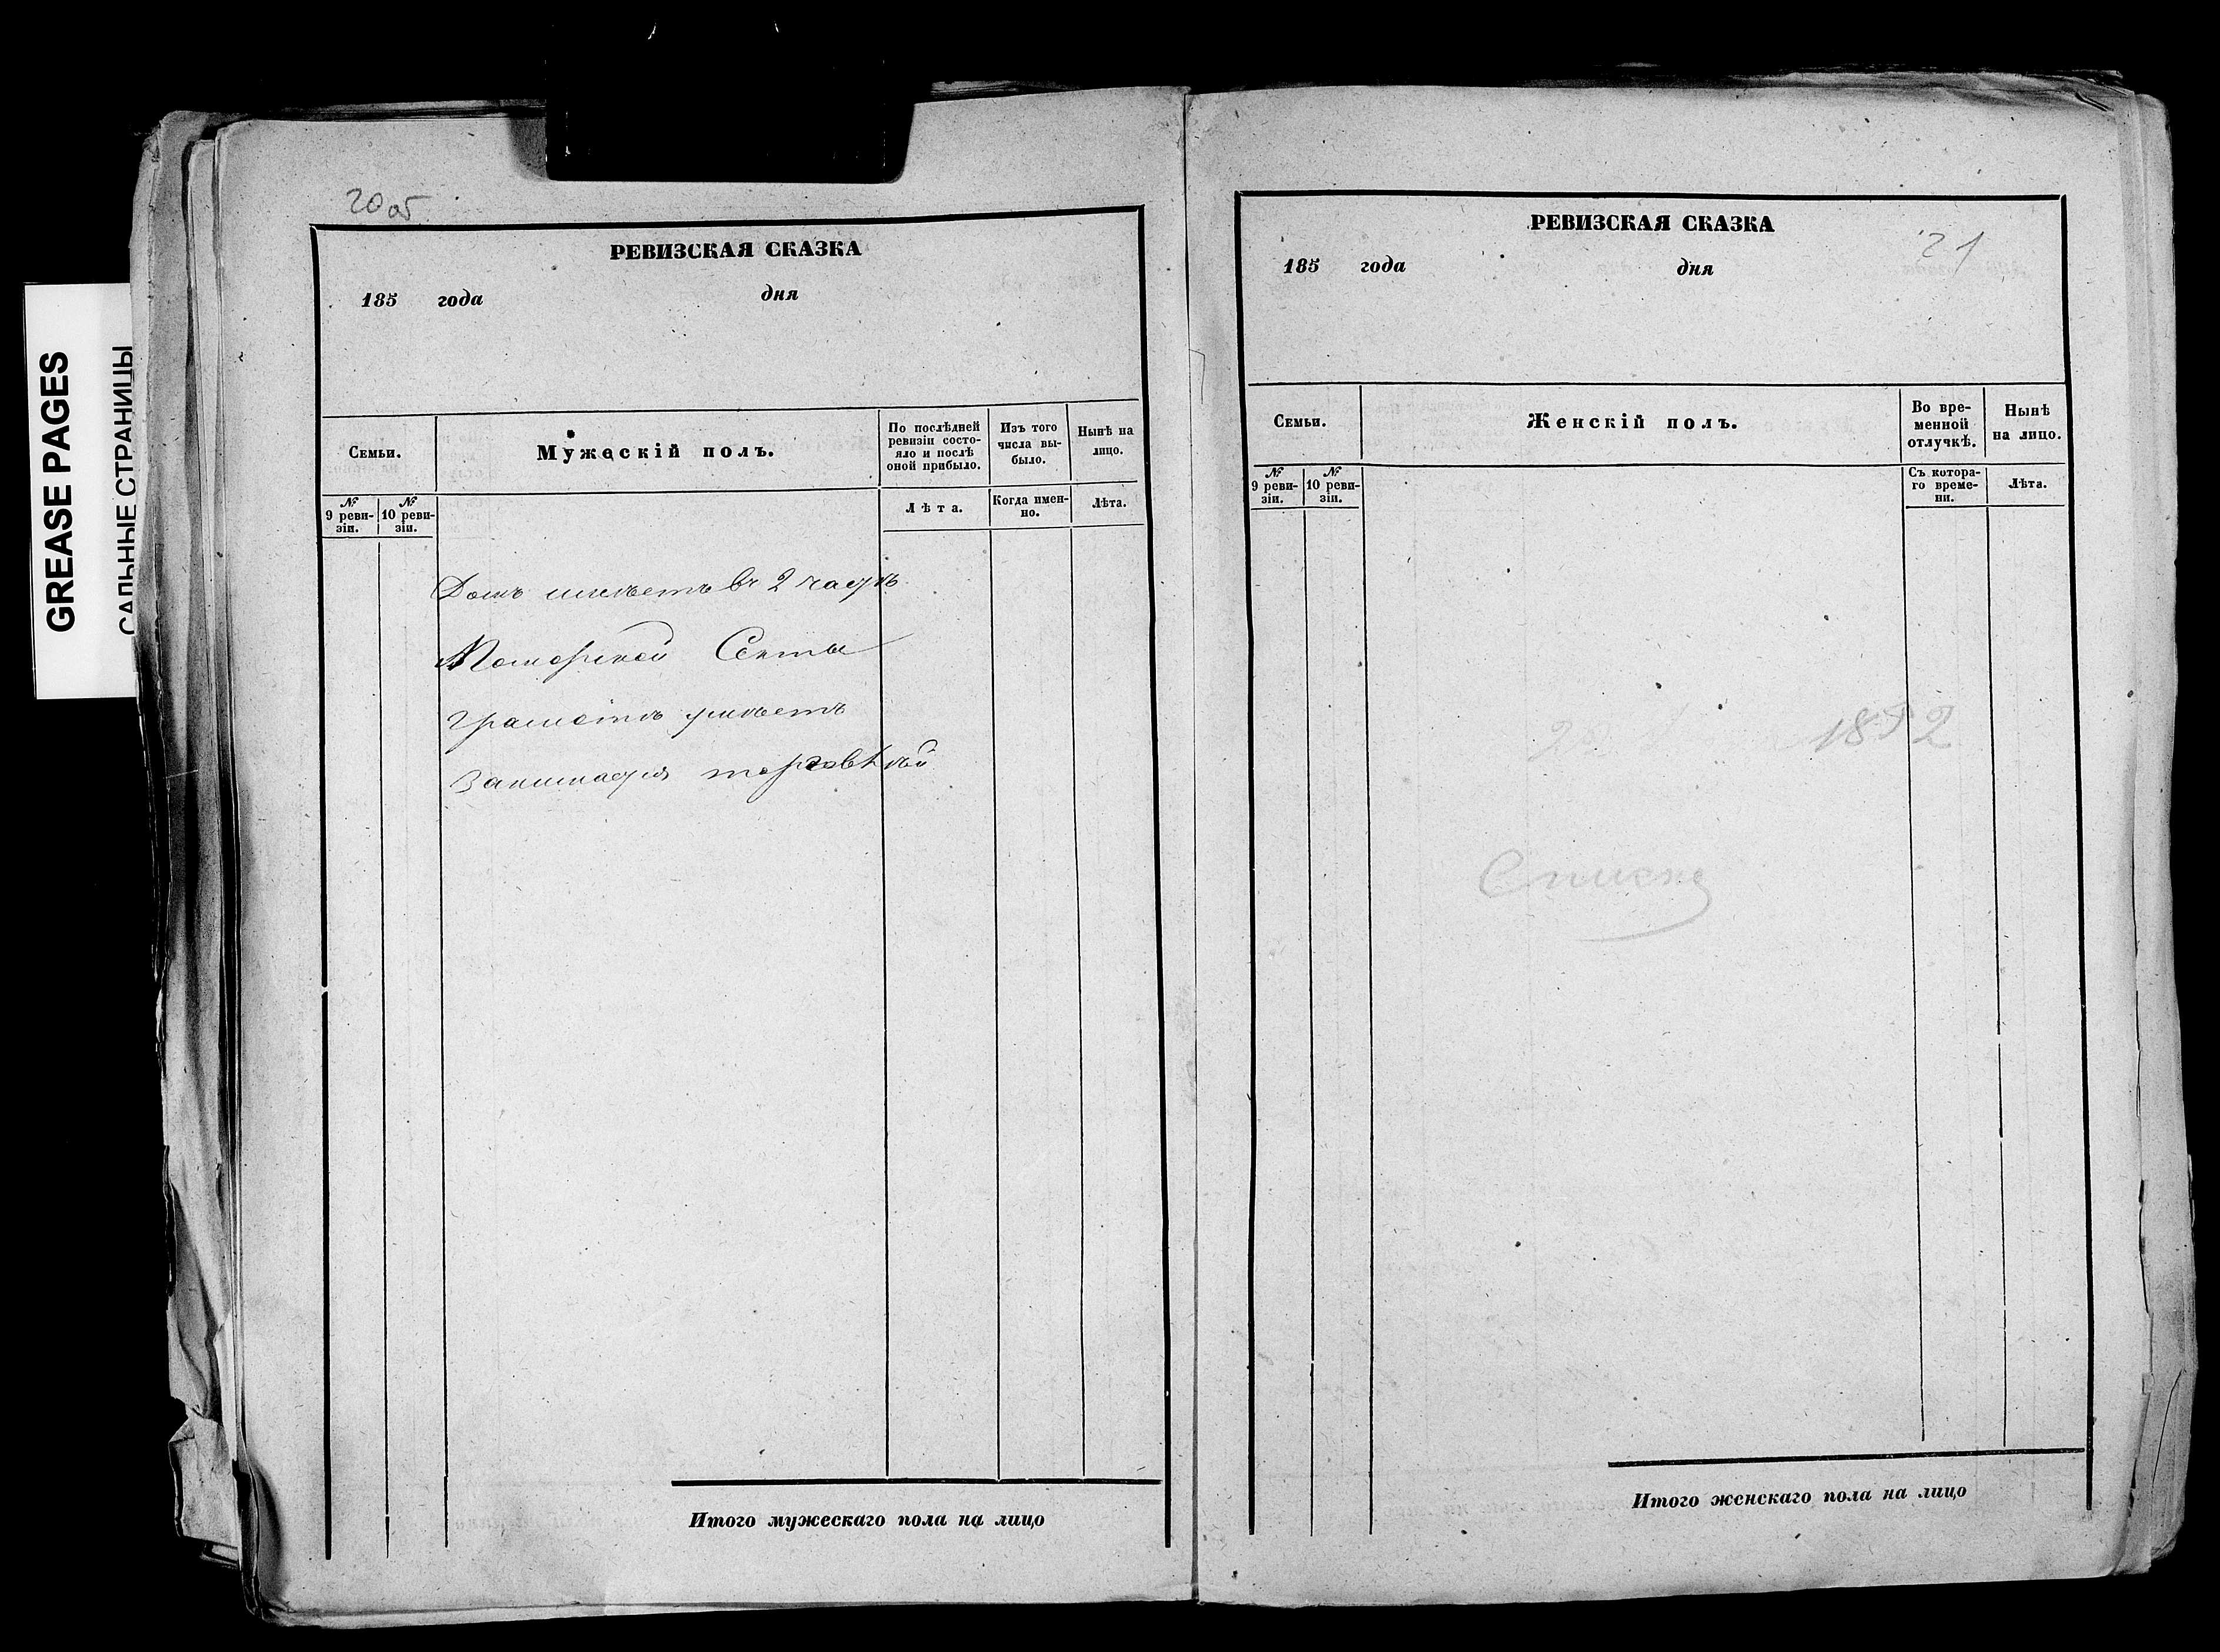 GREASE PAGES
САЛЬНЫЕ СТРАНИЦЫ
20об
РЕВИЗСКАЯ СКАЗКА
185 года дня
Семьи.
Мужескій полъ.
По послѣдней ревизіи состо-
яло и послѣ
оной прибыло.
Изъ того
числа вы-
было.
Нынѣ на
лицо.
№
9 реви-
зіи.
№
10 реви-
зіи.
Лѣта.
Когда имен-
но.
Лѣта.
Домъ имѣетъ въ 2 части
Поморской Секты
Грамотѣ умѣетъ
Занимается торговлѣй
Итого мужескаго пола на лицо
РЕВИЗСКАЯ СКАЗКА
21
185 года дня
Семьи.
Женскій полъ.
Во вре-
менной
отлучкѣ.
Нынѣ
на лицо.
№
9 реви-
зіи.
№
10 реви-
зіи.
Съ котора-
го време-
ни.
Лѣта.
Итого женскаго пола на лицо